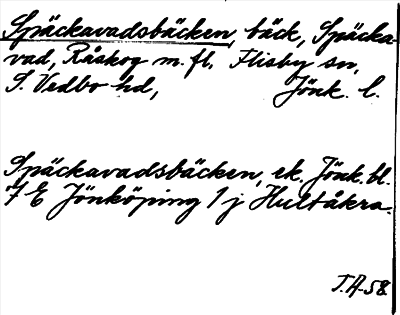 Späckavadsbäcken, bäck, Späcka-
vad, Råskog m.fl. Flisby sn,
S. Vedbo hd, Jönk. l.
Späckavadsbäcken, ek. Jönk. bl.
7 E Jönköping 1 j Hultåkra.
J.A-58.